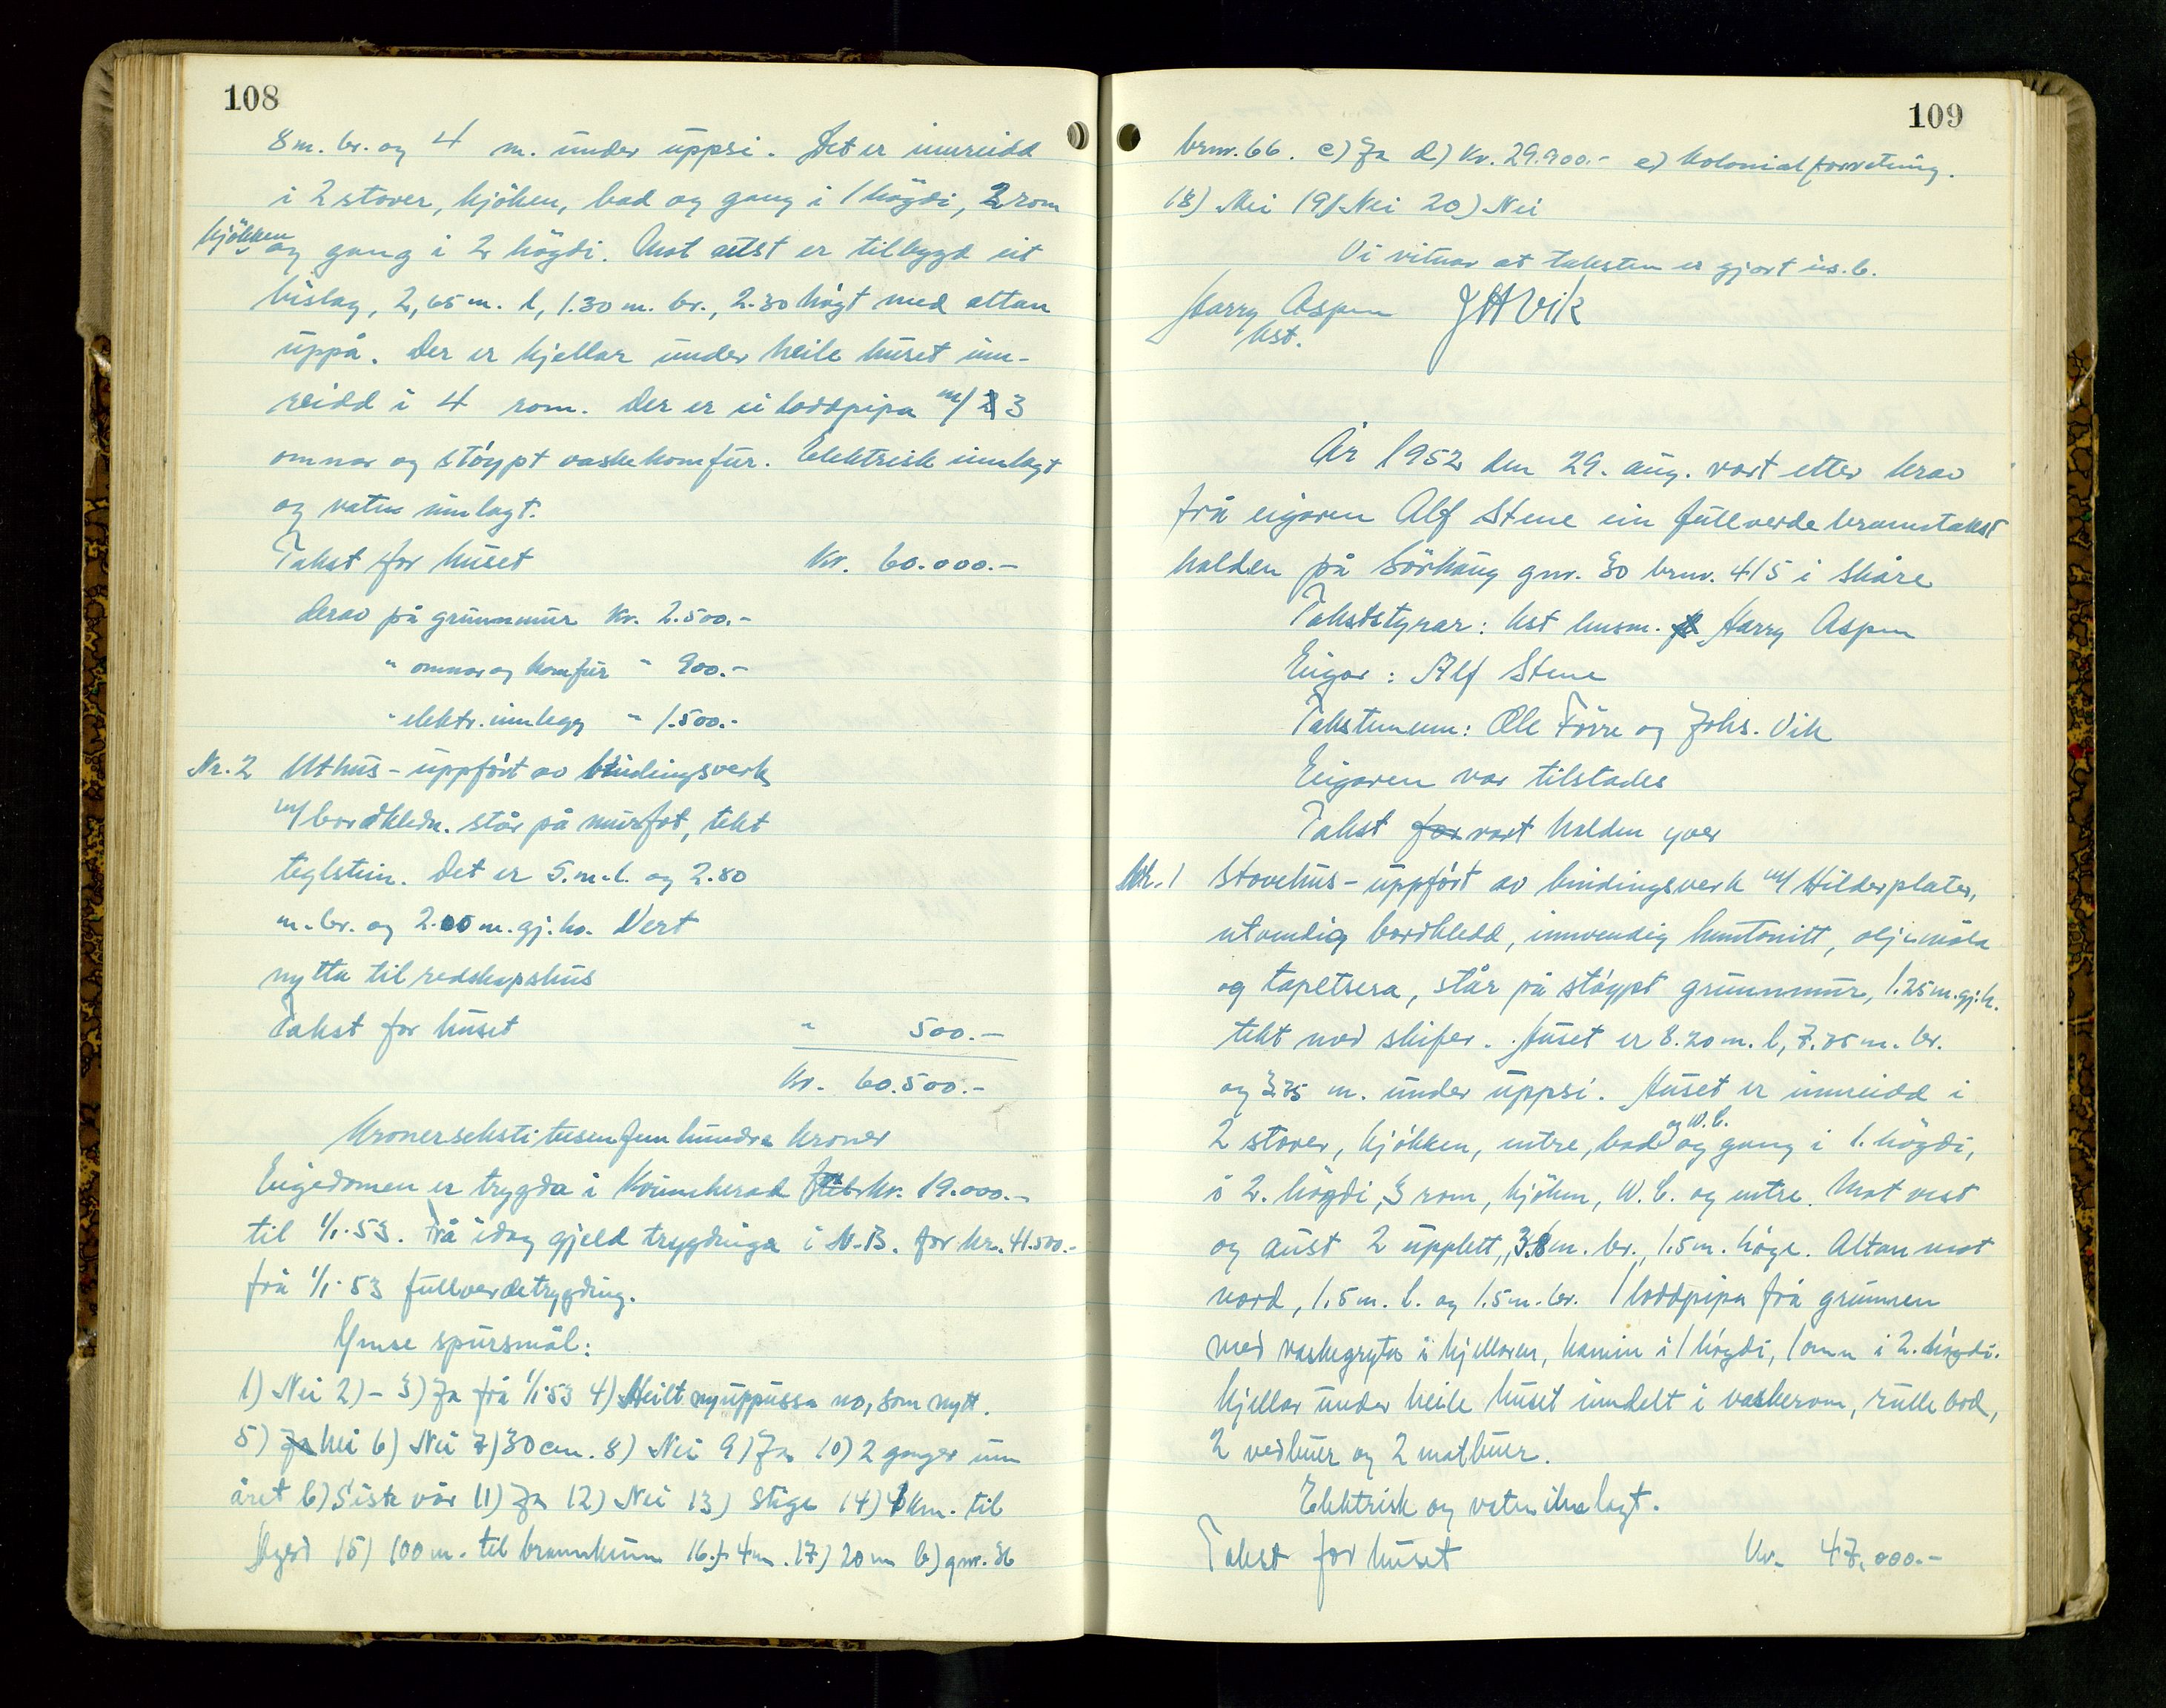 108
8 m. br. og 4 m. under uppsi. Det er innreidd
i 2 stover, kjöken, bad og gang i 1 högdi, 2 rom
kjökken og gang i 2 högdi. Mot aust er tilbygd eit
bislag, 2,65 m. l, 1.30 m. br., 2.30 högt med altan
uppå. Der er kjellar under heile huset inn-
reidd i 4 rom. Der er ei loddpipa m/ 3
omnar og stöypt vaskekomfur. Elektrisk innlagt
og vatn innlagt.
Takst for huset Kr. 60.000.-
Derav på grunnmur Kr. 2.500.-
" omnar og komfur " 900.-
" elektr. innlegg " 1.500.-
Nr. 2 Uthus - uppfört av bindingsverk
m/ bordkledn. står på murfot, tekt
teglstein. Det er 5. m. l. og 2.80
m. br. og 2.00 m. gj. hø. Vert
nytta til redskapshus
Takst for huset " 500.-
Kr. 60.500.-
Kroner seksti tusen fem hundra kroner
Eigedomen er trygda i Kvinnherad for kr. 19.000.-
til 1/1-53. Frå idag gjeld trygdinga i N.B. for kr. 41.500.-
frå 1/1-53 fullverdetrygding.
Ymse spursmål:
1) Nei 2) - 3) Ja frå 1/1-53 4) Heilt nyuppussa no, som nytt.
5) Ja Nei 6) Nei 7) 30 cm. 8) Nei 9) Ja 10) 2 ganger um
året b) Siste vår 11) Ja 12) Nei 13) Stige 14) 4 km. til
15) 100 m. til brannkum 16.) 4 m. 17) 20 m b) gnr. 36
109
brnr. 66. c) Ja d) Kr. 29.900.- e) Kolonialforretning.
18) Nei 19) Nei 20) Nei
Vi vitnar at taksten er gjort
Harry Aspen J H Vik
kst.
År 1952 den 29. aug. vart etter krav
frå eigaren Alf Stene ein fullverde branntakst
halden på Sörhaug gnr. 30 brnr. 415 i Skåre
Takststyrar: kst husm. Harry Aspen
Eigar: Alf Stene
Takstmenn: Ole Förre og Johs. Vik
Eigaren var tilstades
Takst for vart halden yver
Nr. 1 Stovehus - uppfört av bindingsverk m/ Hilderplater,
utvendig bordkledd, innvendig huntonitt, oljemåla
og tapetsera, står på stöypt grunnmur, 1.25 m. gj. h.
tekt med skifer. Huset er 8.20 m. l, 7.75 m. br.
og 3.75 m. under uppsi. Huset er innreidd i
2 stover, kjökken, entre, bad og W.C. og gang i 1. högdi,
i 2. högdi, 3 rom, kjöken, W.C. og entre. Mot vest
og aust 2 upplett, 3.8 m. br., 1.5 m. höge. Altan mot
nord, 1.5 m. l. og 1.5 m. br. 1 loddpipa frå grunnen
med vaskegryta i kjellaren, kamin i 1 högdi, 1 omn i 2. högdi.
Kjellar under heile huset inndelt i vaskerom, rullebod,
2 vedbuer og 2 matbuer.
Elektrisk og vatn innlagt.
Takst for huset Kr. 47.000.-